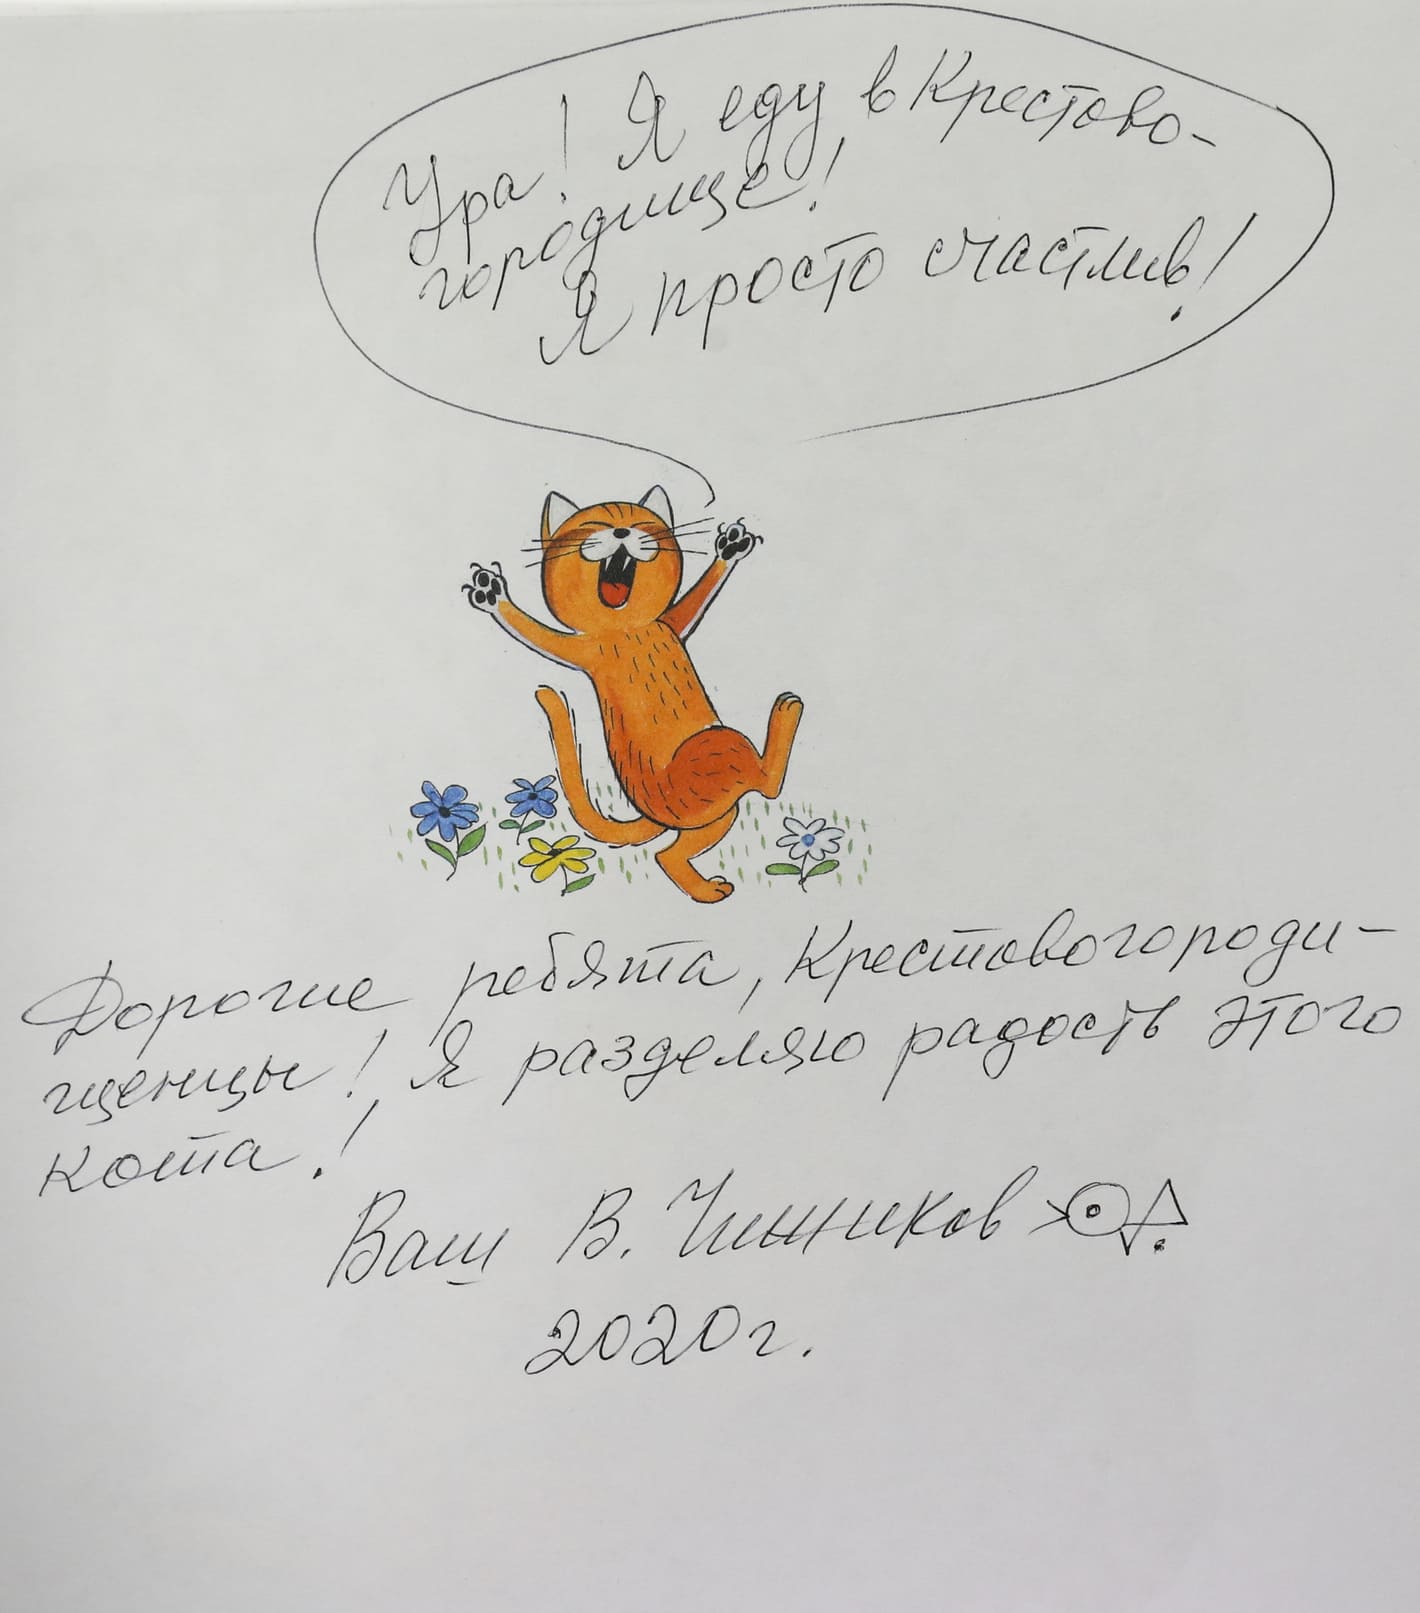 Ура! Я еду в Крестово-
городище!
Я просто счастлив!
Дорогие ребята, Крестовогороди-
щенцы! Я разделяю радость этого
кота!
Ваш В. Чинников
2020г.